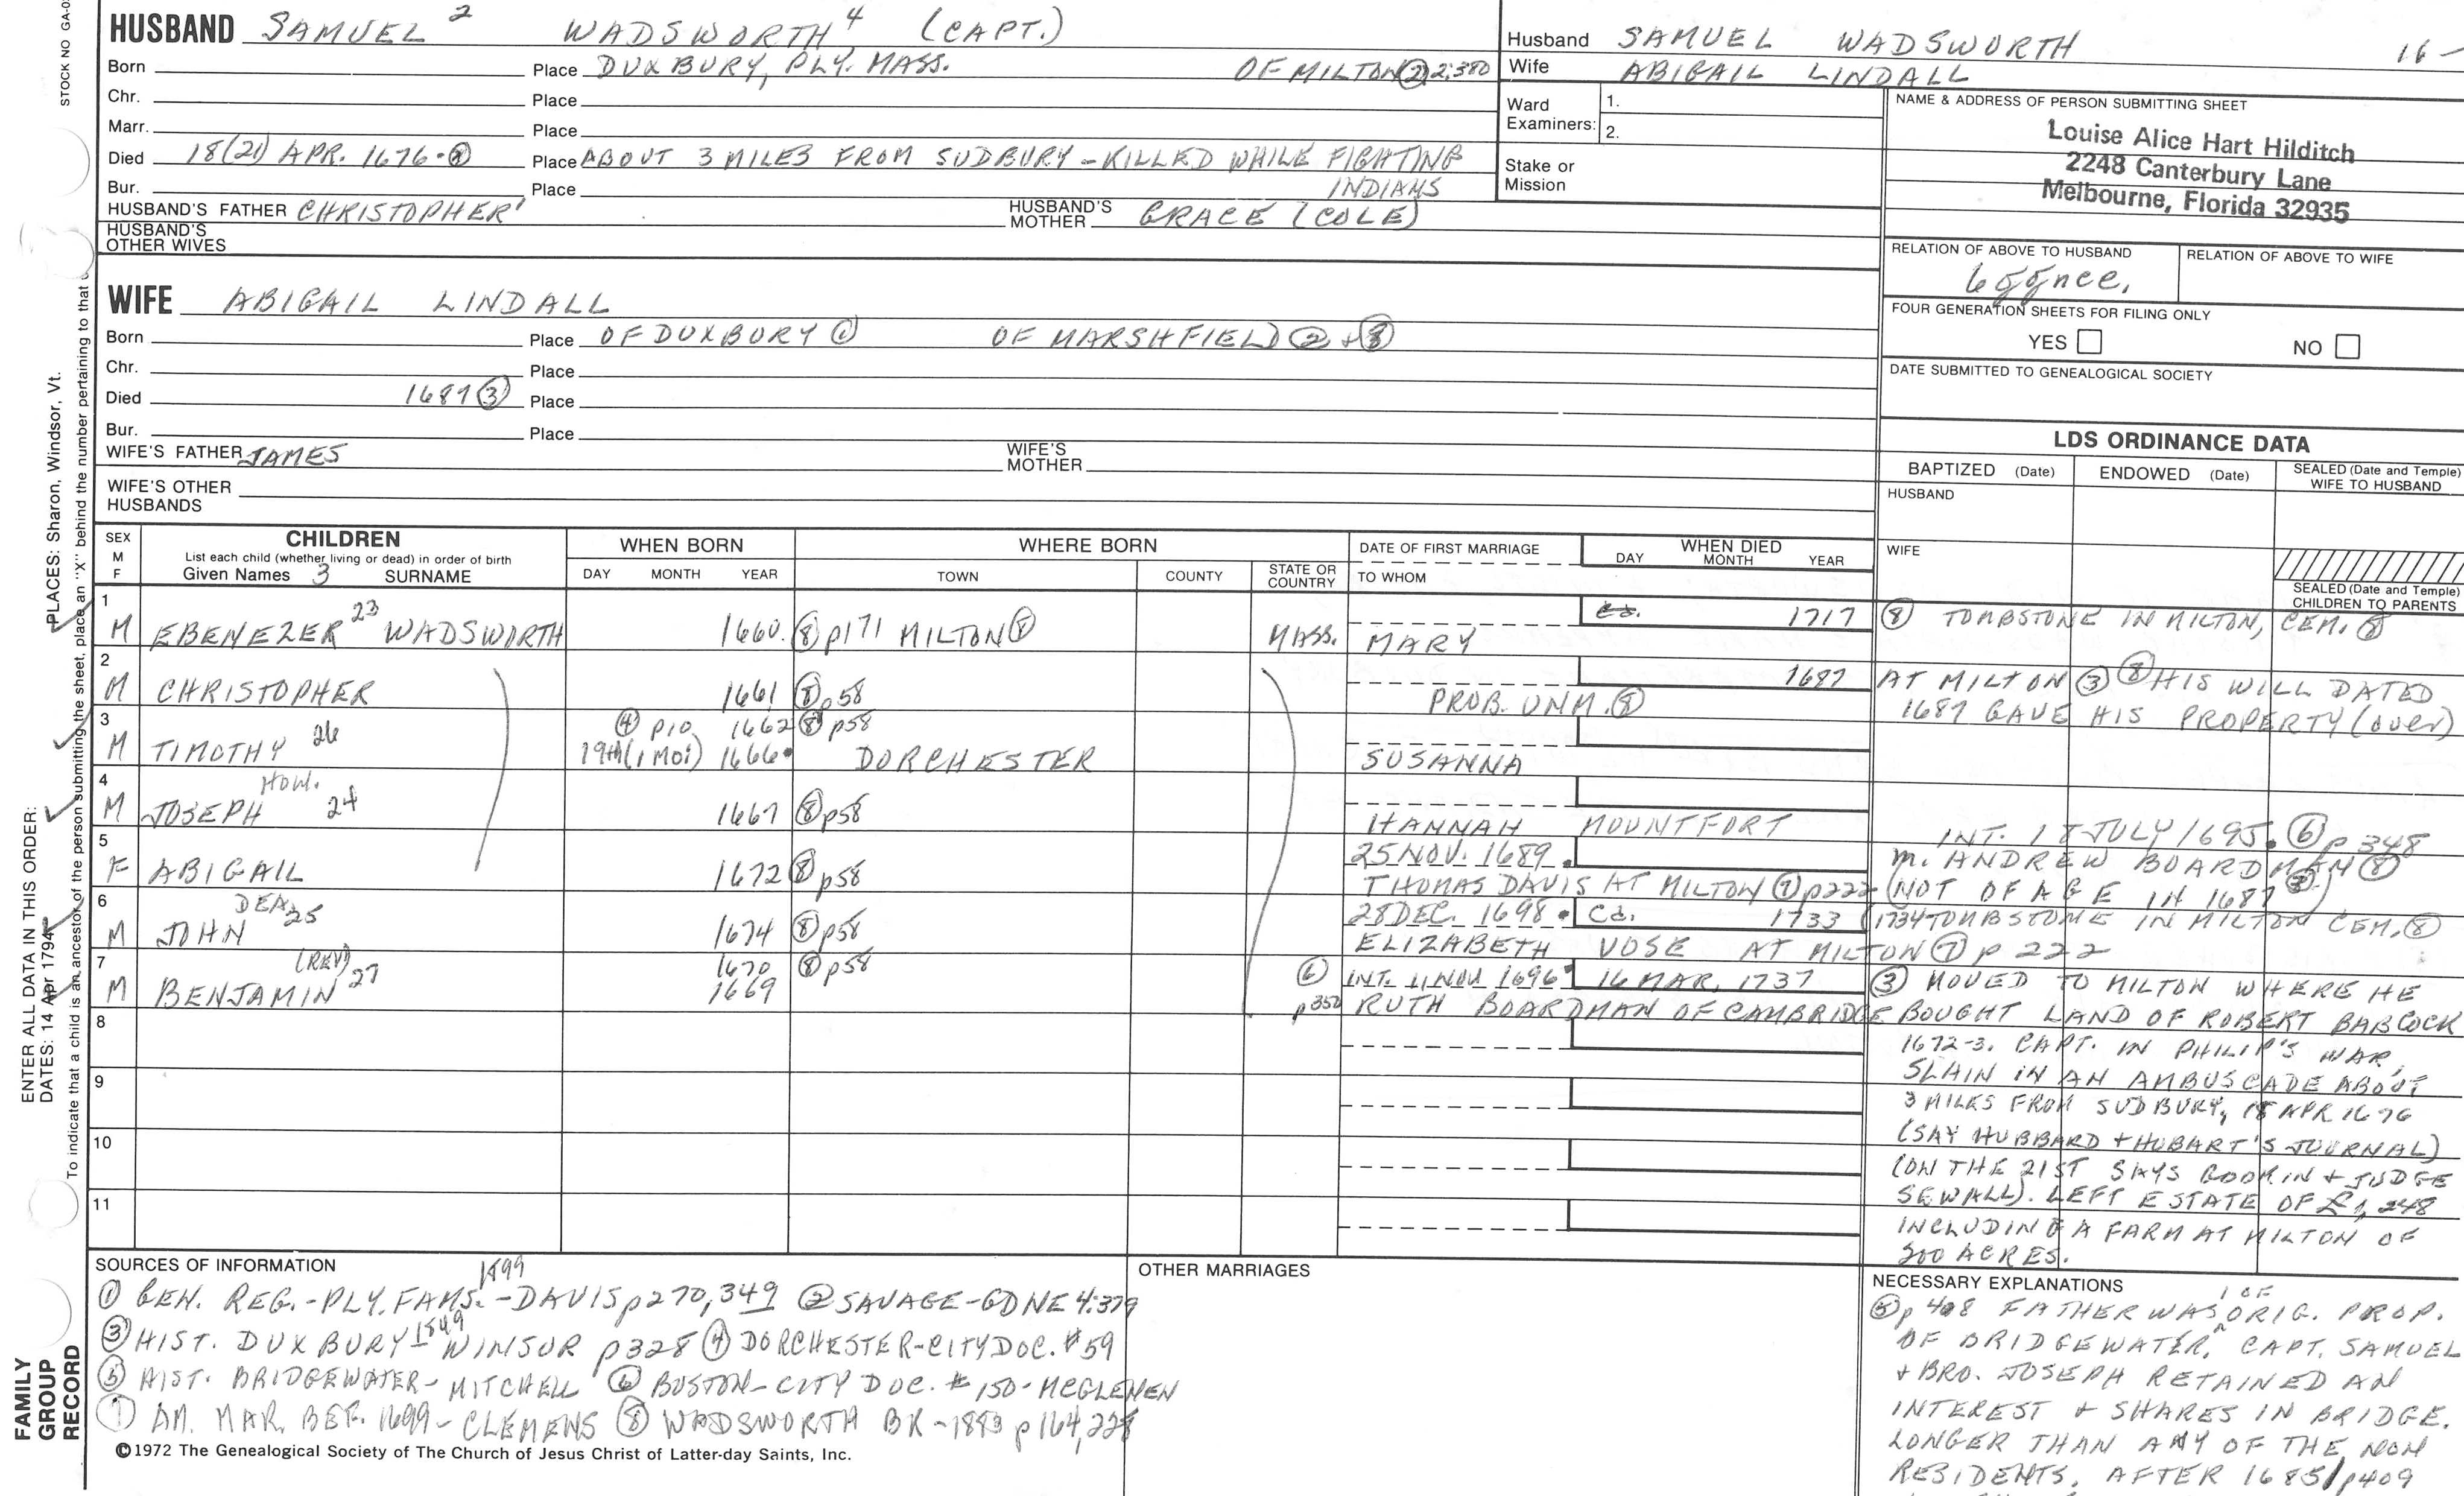 STOCK NO GA-0
HUSBAND SAMUEL 2 WADSWORTH 4 (CAPT.)
Born Place DUXBURY, PLY. MASS. OF MILTON ② 2,380
Chr. Place
Marr. Place
Died 18(21) APR. 1676. ⑧ Place ABOUT 3 MILES FROM SUDBURY - KILLED WHILE FIGHTING
Bur. Place INDIANS
HUSBAND'S FATHER CHRISTOPHER 1 HUSBAND'S MOTHER GRACE (COLE)
HUSBAND'S OTHER WIVES
Husband SAMUEL WADSWORTH 16-
Wife ABIGAIL LINDALL
Ward Examiners: 1.
2.
Stake or Mission
NAME & ADDRESS OF PERSON SUBMITTING SHEET
Louise Alice Hart Hilditch
2248 Canterbury Lane
Melbourne, Florida 32935
RELATION OF ABOVE TO HUSBAND RELATION OF ABOVE TO WIFE
FOUR GENERATION SHEETS FOR FILING ONLY
YES NO
DATE SUBMITTED TO GENEALOGICAL SOCIETY
WIFE ABIGAIL LINDALL
Born Place OF DUXBURY ① OF MARSHFIELD ② + ⑧
Chr. Place
Died 1687 ③ Place
Bur. Place
WIFE'S FATHER JAMES WIFE'S MOTHER
WIFE'S OTHER HUSBANDS
LDS ORDINANCE DATA
BAPTIZED (Date) ENDOWED (Date) SEALED (Date and Temple) WIFE TO HUSBAND
HUSBAND
WIFE
SEALED (Date and Temple) CHILDREN TO PARENTS
SEX M F
CHILDREN
List each child (whether living or dead) in order of birth
Given Names 3 SURNAME
WHEN BORN
DAY MONTH YEAR
WHERE BORN
TOWN COUNTY STATE OR COUNTRY
DATE OF FIRST MARRIAGE
TO WHOM
WHEN DIED
DAY MONTH YEAR
1 M EBENEZER 23 WADSWORTH 1660. ⑧ p171 MILTON ⑧ MASS. MARY 1717 ⑧ TOMBSTONE IN MILTON, CEM. ⑧
2 M CHRISTOPHER 1661 ⑧ p58 PROB. UNM. ⑧ 1687 AT MILTON ③ ⑧ HIS WILL DATED
1687 GAVE HIS PROPERTY (over)
3 M TIMOTHY 26 ④ p10 1662 ⑧ p58
19th (1 MO.) 1666. DORCHESTER SUSANNA
4 M JOSEPH HON. 24 1667 ⑧ p58 HANNAH MOUNTFORT INT. 18 JULY 1695. ⑥ p 348
5 F ABIGAIL 1672 ⑧ p58 25 NOV. 1689. m. ANDREW BOARDMAN ⑧
THOMAS DAVIS AT MILTON ⑦ p222 (NOT OF AGE IN 1687 ③)
6 M JOHN DEA. 25 1674 ⑧ p58 28 DEC. 1698. Cd. 1733 (1734 TOMBSTONE IN MILTON CEM. ⑧
ELIZABETH VOSE AT MILTON ⑦ p 222
7 M BENJAMIN (REV) 27 1670 ⑧ p58
1669 ⑥ INT. 11 NOV 1696. 16 MAR. 1737 ③ MOVED TO MILTON WHERE HE
p350 RUTH BOARDMAN OF CAMBRIDGE BOUGHT LAND OF ROBERT BABCOCK
8
1672-3. CAPT. IN PHILIP'S WAR,
SLAIN IN AN AMBUSCADE ABOUT
9
3 MILES FROM SUDBURY, 18 APR 1676
10
(SAY HUBBARD + HOBART'S JOURNAL)
(ON THE 21ST SAYS GOOKIN + JUDGE
11
SEWALL). LEFT ESTATE OF £1,248
INCLUDING A FARM AT MILTON OF
200 ACRES.
SOURCES OF INFORMATION
① GEN. REG. - PLY. FAMS. 1899 - DAVIS p270, 349 ② SAVAGE - GDNE 4:379
③ HIST. DUXBURY 1849 - WINSOR p328 ④ DORCHESTER - CITY DOC. #59
⑤ HIST. BRIDGEWATER - MITCHELL ⑥ BOSTON - CITY DOC. # 150 - MCGLENEN
⑦ AM. MAR. BEF. 1699 - CLEMENS ⑧ WADSWORTH BK - 1883 p164, 228
©1972 The Genealogical Society of The Church of Jesus Christ of Latter-day Saints, Inc.
OTHER MARRIAGES
NECESSARY EXPLANATIONS
⑤ p 408 FATHER WAS 1 OF ORIG. PROP.
OF BRIDGEWATER. CAPT. SAMUEL
+ BRO. JOSEPH RETAINED AN
INTEREST + SHARES IN BRIDGE.
LONGER THAN ANY OF THE NON
RESIDENTS. AFTER 1685/p409
FAMILY GROUP RECORD
ENTER ALL DATA IN THIS ORDER:
DATES: 14 Apr 1794
PLACES: Sharon, Windsor, Vt.
To indicate that a child is an ancestor of the person submitting the sheet, place an "X" behind the number pertaining to that